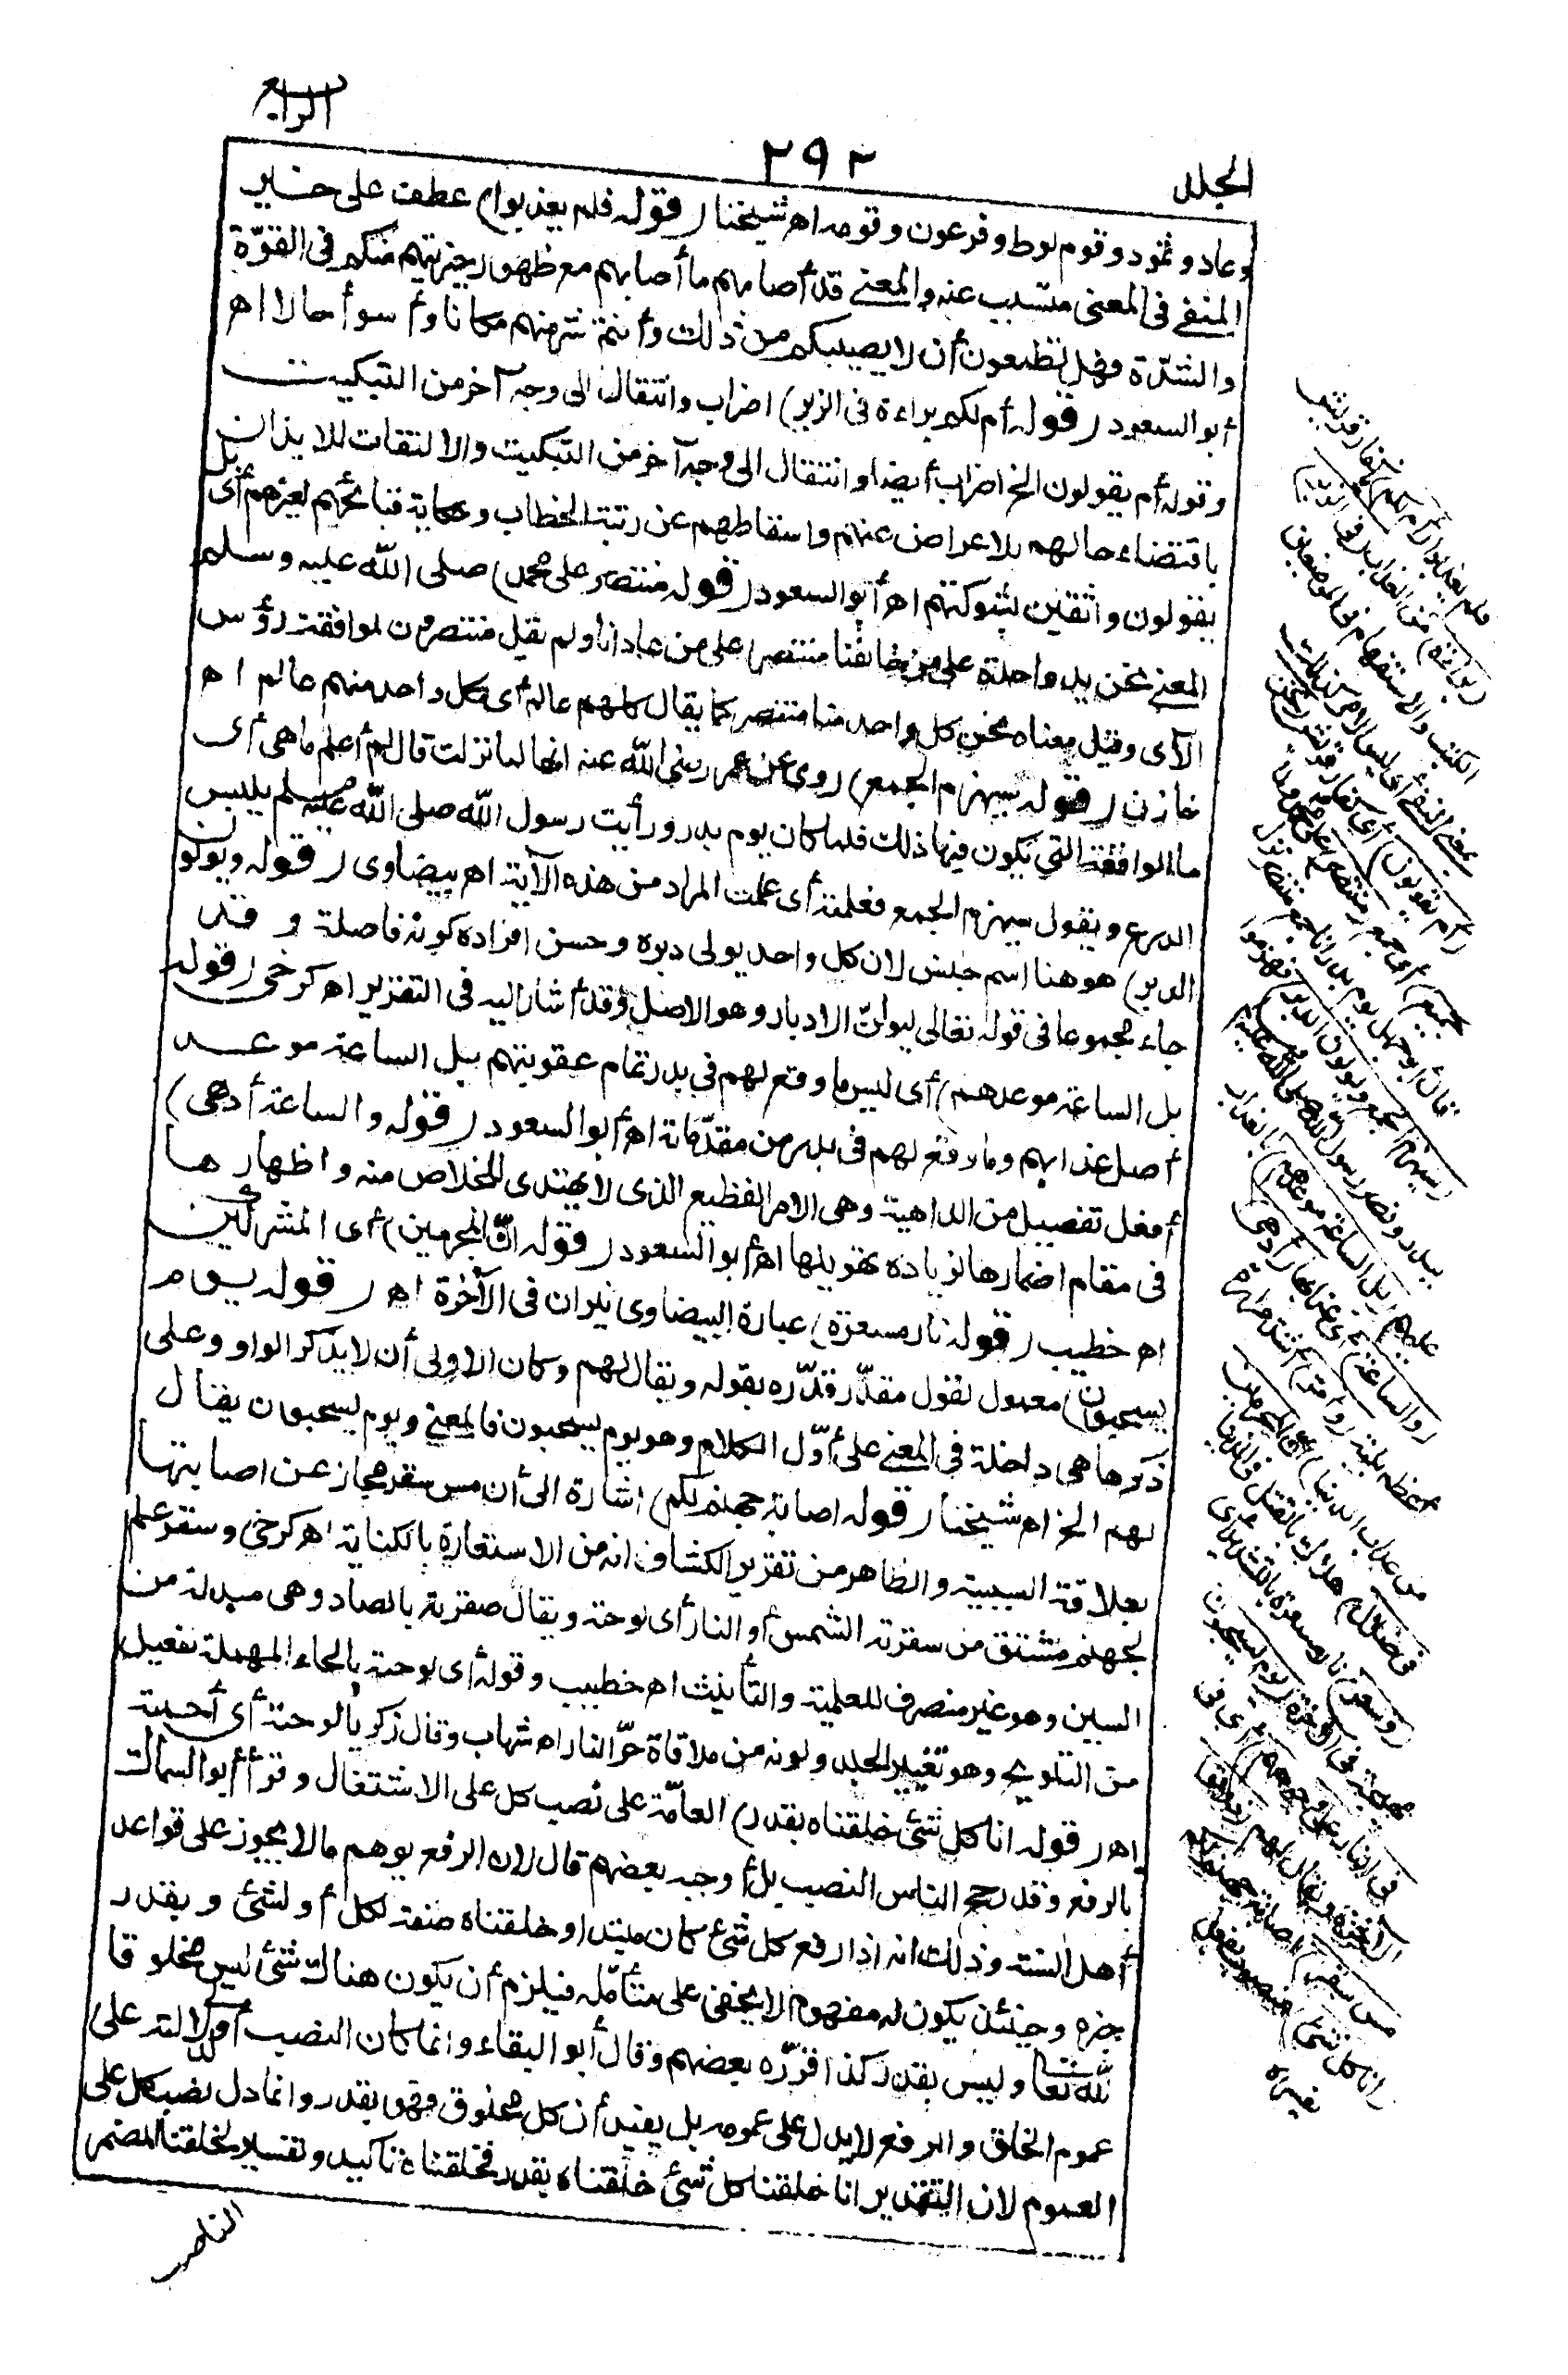 المجلد
٢٩٢
الرابع
وعاد وثمود وقوم لوط وفرعون وقومه اه شيخنا (قوله فلم يعذبوا) عطف على خبر
المنفى فى المعنى متسبب عنه والمعنى قد أصابهم ما أصابهم مع ظهور خيريتهم منكم فى القوّة
والشدّة فهل تطمعون أن لا يصيبكم من ذلك وأنتم شر منهم مكانا وأسوأ حالا اه
أبو السعود (قوله أم لكم براءة فى الزبر) اضراب وانتقال الى وجه آخر من التبكيت
وقوله أم يقولون الخ اضراب أيضا وانتقال الى وجه آخر من التبكيت والالتفات للايذان
باقتضاء حالهم للاعراض عنهم واسقاطهم عن رتبة الخطاب وحكاية قبائحهم لغيرهم أى بل
يقولون واثقين بشوكتهم اه أبو السعود (قوله منتصر على محمد) صلى الله عليه وسلم
المعنى نحن يد واحدة على من خالفنا منتصر على من عادانا ولم يقل منتصرون لموافقة رؤس
الآى وقيل معناه نحن كل واحد منا منتصر كما يقال كلهم عالم أى كل واحد منهم عالم اه
خازن (قوله سيهزم الجمع) روى عن عمر رضى الله عنه انها لما نزلت قال لم أعلم ما هى أى
ما الواقعة التى يكون فيها ذلك فلما كان يوم بدر ورأيت رسول الله صلى الله عليه وسلم يلبس
الدرع ويقول سيهزم الجمع فعلمته أى علمت المراد من هذه الآية اه بيضاوى (قوله ويولون
الدبر) هو هنا اسم جنس لان كل واحد يولى دبره وحسن افراده كونه فاصلة وقد
جاء مجموعا فى قوله تعالى ليولنّ الادبار وهو الاصل وقد أشار اليه فى التقرير اه كرخى (قوله
بل الساعة موعدهم) أى ليس ما وقع لهم فى بدر تمام عقوبتهم بل الساعة موعد
أصل عذابهم وما وقع لهم فى بدر من مقدّماته اه أبو السعود (قوله والساعة أدهى)
أفعل تفضيل من الداهية وهى الامر الفظيع الذى لا يهتدى للخلاص منه واظهارها
فى مقام اضمارها لزيادة تهويلها اه أبو السعود (قوله انّ المجرمين) أى المشركين
اه خطيب (قوله نار مسعرة) عبارة البيضاوى نيران فى الآخرة اه (قوله يوم
يسحبون) معمول لقول مقدّر قدّره بقوله ويقال لهم وكان الاولى أن لا يذكر الواو وعلى
ذكرها هى داخلة فى المعنى على أوّل الكلام وهو يوم يسحبون فالمعنى ويوم يسحبون يقال
لهم الخ اه شيخنا (قوله اصابة جهنم لكم) اشارة الى أن مس سقر مجاز عن اصابتها
بعلاقة السببية والظاهر من تقرير الكشاف انه من الاستعارة بالكناية اه كرخى وسقر علم
لجهنم مشتق من سقرته الشمس أو النار أى لوحته ويقال صقرته بالصاد وهى مبدلة من
السين وهو غير منصرف للعلمية والتأنيث اه خطيب وقوله أى لوحته بالحاء المهملة تفعيل
من التلويح وهو تغيير الجلد ولونه من ملاقاة حرّ النار اه شهاب وقال زكريا لوحته أى أحمته
اه (قوله انا كل شئ خلقناه بقدر) العامّة على نصب كل على الاشتغال وقرأ أبو السمال
بالرفع وقد رجح الناس النصب بل أوجبه بعضهم قال لان الرفع يوهم ما لا يجوز على قواعد
أهل السنة وذلك انه اذا رفع كل شئ كان مبتدا وخلقناه صفة لكل أو لشئ وبقدر
خبره وحينئذ يكون له مفهوم لا يخفى على متأمّله فيلزم أن يكون هناك شئ ليس مخلوقا
لله تعا وليس بقدر كذا قرّره بعضهم وقال أبو البقاء وانما كان النصب أولى لدلالته على
عموم الخلق والرفع لا يدل على عمومه بل يفيد أن كل مخلوق فهو بقدر وانما دل نصب كل على
العموم لان التقدير انا خلقنا كل شئ خلقناه بقدر فخلقناه تأكيد وتفسير لخلقنا المضمر
الناصب
فلم يعذبوا (أم لكم) يا كفار قريش
(براءة) من العذاب (فى الزبر)
الكتب والاستفهام فى الموضعين
بمعنى النفى أى ليس الامر كذلك
(أم يقولون) أى كفار قريش (نحن
جميع) أى جمع (منتصر) على محمد ولما
قال أبو جهل يوم بدر انا جمع منتصر نزل
(سيهزم الجمع ويولون الدبر) فهزموا
ببدر ونصر رسول الله صلى الله عليه وسلم
عليهم (بل الساعة موعدهم) بالعذاب
(والساعة) أى عذابها (أدهى)
أعظم بلية (وأمر) أشد مرارة
من عذاب الدنيا (ان المجرمين
فى ضلال) هلاك بالقتل فى الدنيا
(وسعر) نار مسعرة بالتشديد أى
مهيجة فى الآخرة (يوم يسحبون
فى النار على وجوههم) أى فى
الآخرة ويقال لهم (ذوقوا
مس سقر) اصابة جهنم لكم
(انا كل شئ) منصوب بفعل
يفسره